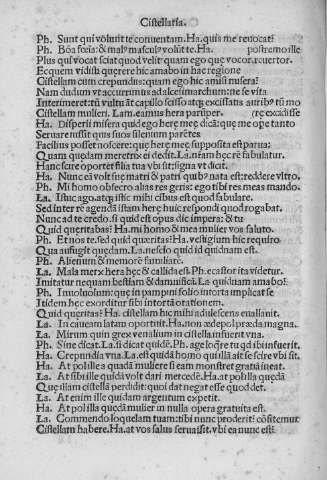 Cistellaria.
Ph. Sunt qui volunt te conuentam. Ha. quis me reuocat?
Ph. Bõa foeĩa: & malꝰ masculꝰ volũt te. Ha. postremo ille
Plus qui vocat sciat quod velit quam ego quę vocor. reuertor.
Ecquem vidisti quęrere hic amabo in hac regione
Cistellam cum crepundijs: quam ego hic amisi misera?
Nam dudum vt accurrimus ad alcesimarchum: ne se vita
Interimeret: tũ vultu ãt capillo scisso atqꝫ excissatis aurib? tũ mo
Cistellam mulieri. Lam. eamus hera pariper. re excidisse
Ha. Disperij misera quid ego herę meę dicã: quę me ope tanto
Seruare iussit quis suos silenum parẽtes
Facilius posset noscere: quę herę meę supposita est parua:
Quam quędam meretrix ei dedit. La. nẽam hęc rẽ fabulatur.
Hanc scire oportet filia tua vbi sit: signa vt dicit.
Ha. Nunc eã volt suę matri & patri quibꝰ nata est: reddere vltro.
Ph. Mi homo obsecro alias res geris: ego tibi res meas mando.
La. Istuc ago, atqꝫ istic mihi cibus est quod fabulare.
Sed inter rẽ agendã istam herę huic respondi quod rogabat.
Nunc ad te redeo. si quid est opus dic impera: & tu
Quid queritabas? Ha. mi homo & mea mulier vos saluto.
Ph. Et nos te. sed quid quæritas? Ha. vestigium hic requiro
Qua aufugit quędam. La. nescio quid id quidnam est.
Ph. Alienum & męrorẽ familiarẽ.
La. Mala merx hera hęc & callida est. Ph. ecastor ita videtur.
Imitatur nequam bestiam & damnificã. La. quidnam amabo?
Ph. Inuoluolum: quę in pampini folio intorta implicat se
Itidem hęc exorditur sibi intortã orationem.
Quid queritas? Ha. cistellam hic mihi adulescens euallanit.
La. In caueam latam oportuit. Ha. non ædepol præda magna.
La. Mirum quin grex venalium in cistella infuerit vna.
Ph. Sine dicat. La. si dicat quidẽ. Ph. age loq̃re tu qd ibi infuerit.
Ha. Crepundia vna. La. est quidã homo qui illã ait se scire vbi sit.
Ha. At pol ille a quadã muliere si eam monstret gratiã ineat.
La. At sibi ille quidã volt dari mercedẽ. Ha. at pol illa quędã
Quę illam cistellã perdidit: quoi dat negat esse quod det.
La. At enim ille quidam argentum expetit.
Ha. At pol illa quędã mulier in nulla opera gratuita est.
La. Commendo loquelam tuam: tibi nunc proderit? cõfitemur
Cistellam habere. Ha. at vos salus seruassit. vbi ea nunc est?